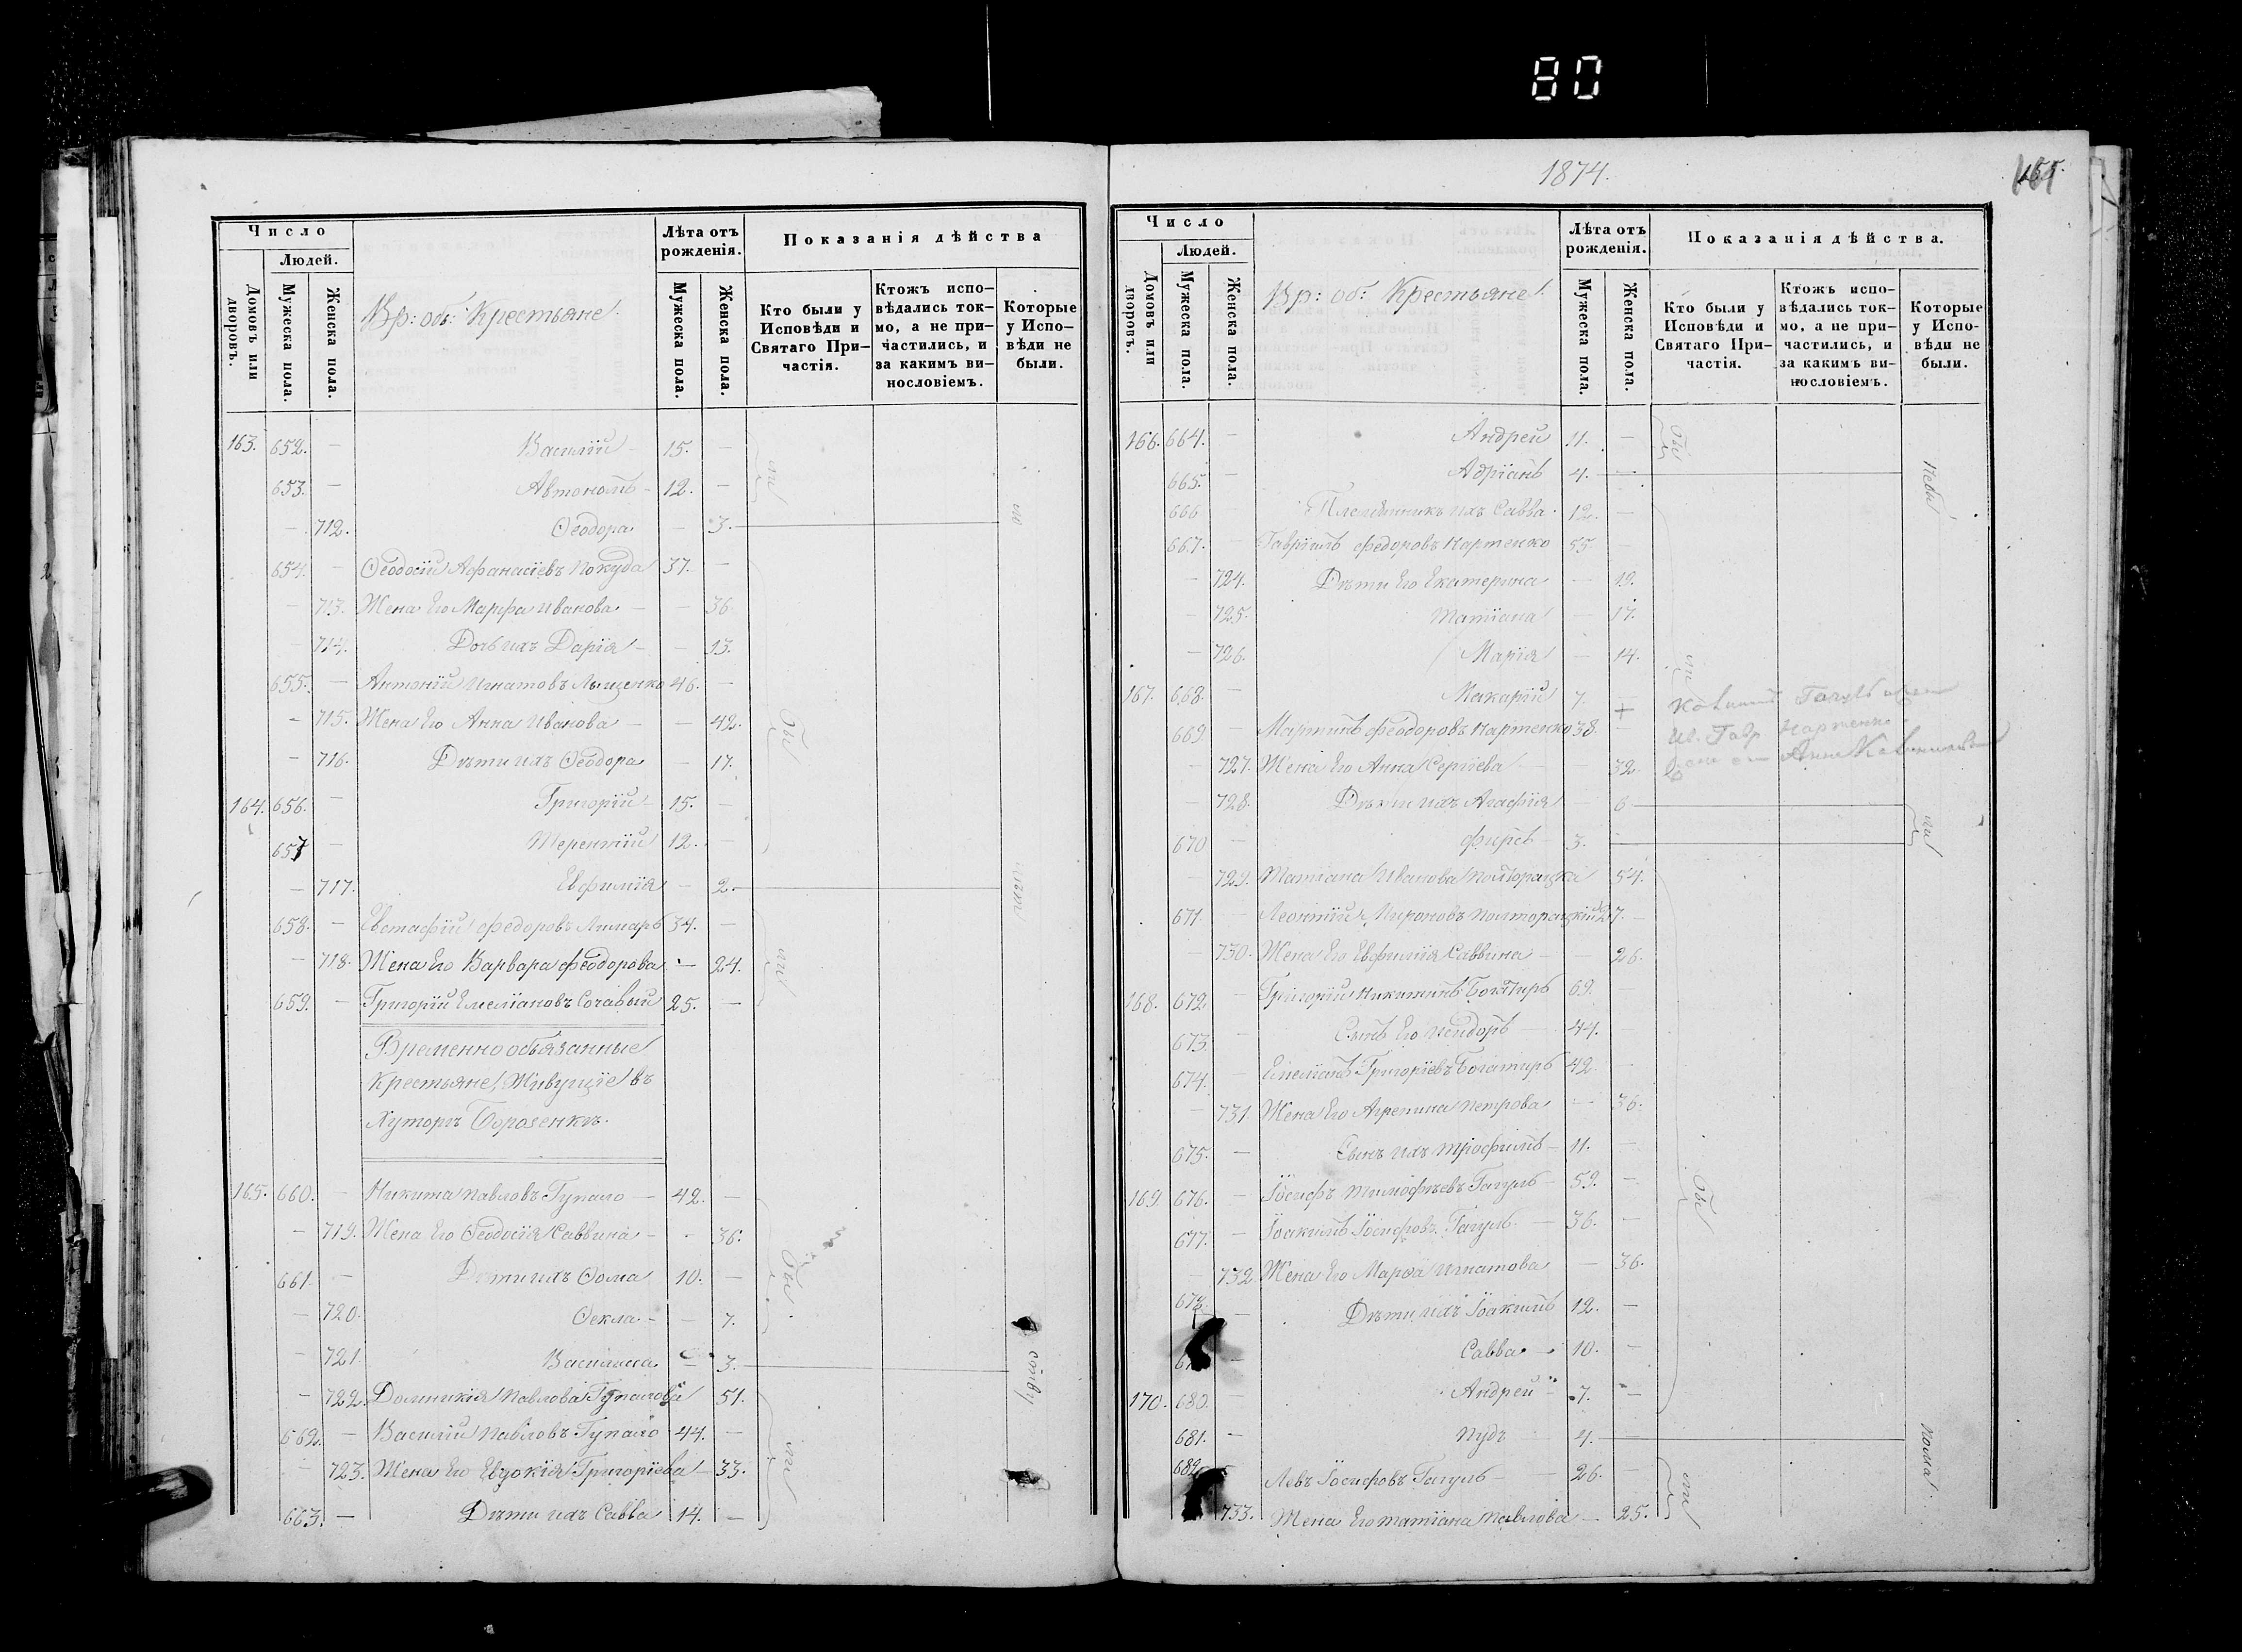 80
Число
Людей.
Домовъ или дворовъ.
Мужеска пола.
Женска пола.
Вр: об: Крестьяне.
Лѣта отъ рожденія.
Мужеска пола.
Женска пола.
Показанія дѣйства
Кто были у Исповѣди и Святаго Причастія.
Ктожъ исповѣдались токмо, а не причастились, и за какимъ винословіемъ.
Которые у Исповѣди не были.
163. 652. — Василій 15. —
653. — Автономъ 12. —
— 712. Ѳеодора — 3.
654. — Ѳеодосій Афанасіевъ Покуда 37. —
— 713. Жена Его Марфа Иванова — 36
— 714. Дочь ихъ Дарія — 13.
655. — Антоній Игнатовъ Лыщенко 46. —
— 715. Жена Его Анна Иванова — 42.
— 716. Дѣти ихъ Ѳеодора — 17.
164. 656. — Григорій 15. —
657 — Терентій 12. —
— 717. Евфимія — 2.
658. — Евстафій Федоровъ Лимарь 34. —
— 718. Жена Его Варвара Феодорова — 24.
659. — Григорій Емеліановъ 25. —
Временно обязанные
Крестьяне, Живущіе въ
Хуторѣ Борозенкѣ.
165. 660. — Никита Павловъ Гупало 42. —
— 719. Жена Его Ѳеодосія Саввина — 36.
661. — Дѣти ихъ Ѳома 10. —
— 720. Ѳекла — 7.
— 721. Василиса — 3.
— 722. Домникія Павлова Гупалова 51.
662. — Василій Павловъ Гупало 44. —
— 723. Жена Его Евдокія Григоріева — 33.
663. — Дѣти ихъ Савва 14. —
1874.
Число
Людей.
Домовъ или дворовъ.
Мужеска пола.
Женска пола.
Вр: об: Крестьяне.
Лѣта отъ рожденія.
Мужеска пола.
Женска пола.
Показанія дѣйства.
Кто были у Исповѣди и Святаго Причастія.
Ктожъ исповѣдались токмо, а не причастились, и за какимъ винословіемъ.
Которые у Исповѣди не были.
166. 664. — Андрей 11. —
665. — Адріанъ 4. —
666 — Племянникъ ихъ Савва 12. —
667. — Гавріилъ Федоровъ Картенко 55 —
— 724. Дѣти Его Екатерина — 19.
— 725. Татіана — 17.
— 726. Марія — 14.
167. 668. — Макарій 7.
669 — Мартинъ Феодоровъ Картенко 38. —
— 727. Жена Его Анна Сергіева — 32.
— 728. Дѣти ихъ Агафія — 6
670 — Фирсъ 3.
— 729. Татіана Иванова Полторацка 54.
671. — Леонтій Мироновъ Полторацкій 27. —
— 730. Жена Его Евфимія Саввина — 26.
168. 672 — Григорій Никитинъ Богатирь 69. —
673 — Сынъ Его Исидоръ 44. —
674. — Емеліанъ Григоріевъ Богатирь 42. —
— 731. Жена Его Агрепина Петрова — 36.
675. — Сынъ ихъ Трофимъ 11. —
169. 676. — Іосифъ Тимофѣевъ Гагуль 59. —
677. — Іоакимъ Іосифовъ Гагуль 36. —
— 732 Жена Его Марѳа Игнатова — 36.
678. — Дѣти ихъ Іоакимъ 12. —
— Савва 10. —
170. 680. — Андрей 7. —
681. — Пудъ 4.
682 Левъ Іосифовъ Гагуль 26. —
733. Жена Его Татіана Павлова — 25.